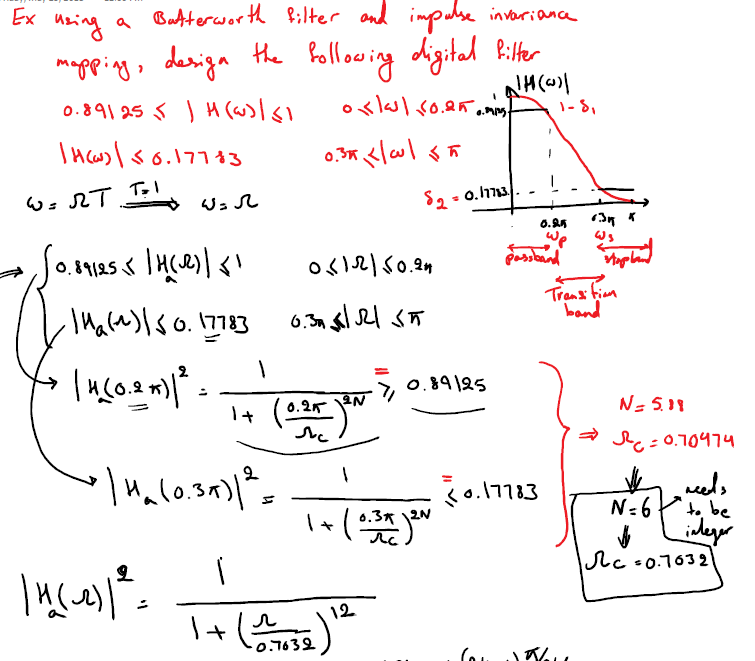 Ex using a Butterworth filter and impulse invariance
mapping, design the following digital filter
0.89125 ≤ |H(ω)| ≤ 1    0 ≤ |ω| ≤ 0.2π
|H(ω)| ≤ 0.17783    0.3π ≤ |ω| ≤ π
|H(ω)|
1
0.89125
1-δ₁
δ₂ = 0.17783
0.2π 0.3π π
ωp ωs
passband stopband
Transition
band
ω = ΩT  T=1 ⟹ ω = Ω
⇒ { 0.89125 ≤ |Ha(Ω)| ≤ 1    0 ≤ |Ω| ≤ 0.2π
|Ha(Ω)| ≤ 0.17783    0.3π ≤ |Ω| ≤ π
|Ha(0.2π)|² = 1 / (1 + (0.2π/Ωc)^2N) ≥ = 0.89125
|Ha(0.3π)|² = 1 / (1 + (0.3π/Ωc)^2N) ≤ = 0.17783
⇒ N = 5.88
Ωc = 0.70474
⇓
N = 6 → needs to be integer
⇓
Ωc = 0.7032
|Ha(Ω)|² = 1 / (1 + (Ω/0.7032)^12)